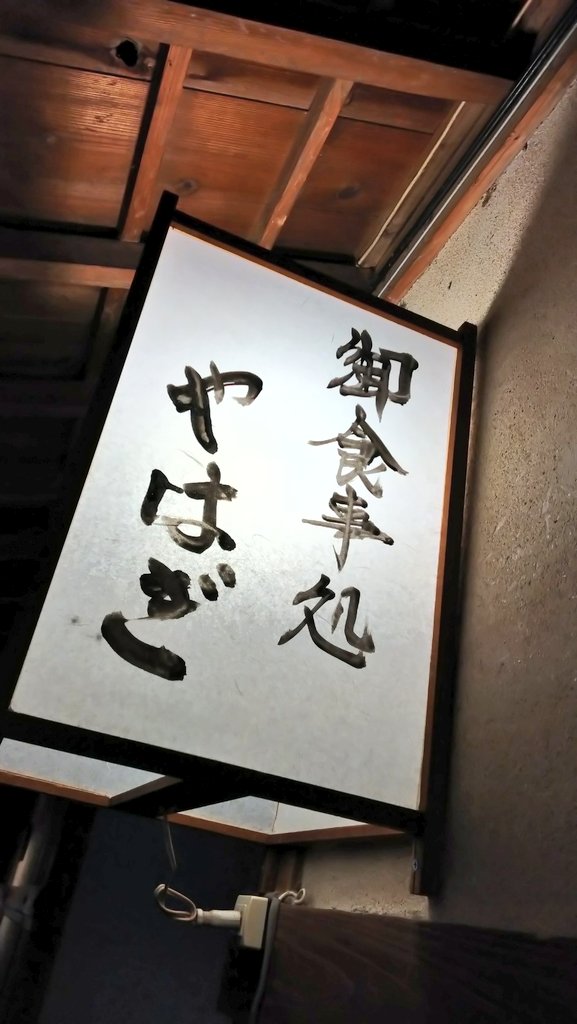 御食事処
やはぎ